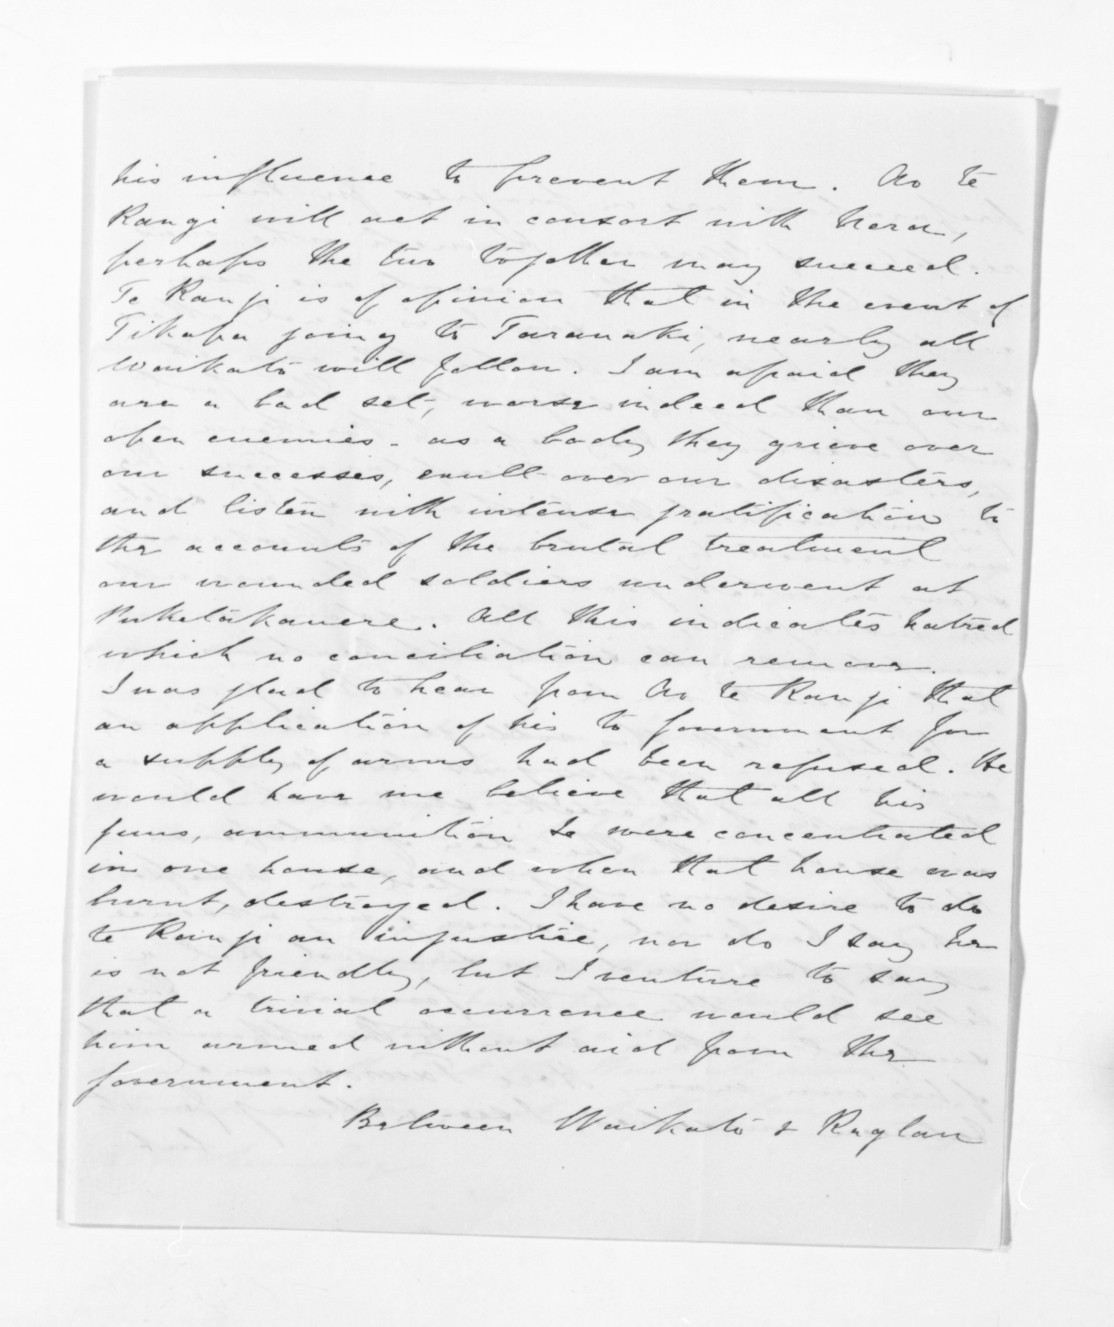 his influence to prevent them. Ao te
Rangi will act in consort with Nera,
perhaps the two together may succeed.
Te Rangi is of opinion that in the event of
Tikapa going to Taranaki, nearly all
Waikato will follow. I am afraid they
are a bad set, worse indeed than our
open enemies - as a body they grieve over
our successes, exult over our disasters,
and listen with intense gratification to
the accounts of the brutal treatment
our wounded soldiers underwent at
Puketakauere. All this indicates hatred
which no conciliation can remove.
I was glad to hear from Ao te Rangi that
an application of his to Government for
a supply of arms had been refused. He
would have me believe that all his
guns, ammunition &c were concentrated
in one house, and when that house was
burnt, destroyed. I have no desire to do
te Rangi an injustice, nor do I say he
is not friendly, but I venture to say
that a trivial occurrence would see
him armed without aid from the
Government.
Between Waikato & Raglan